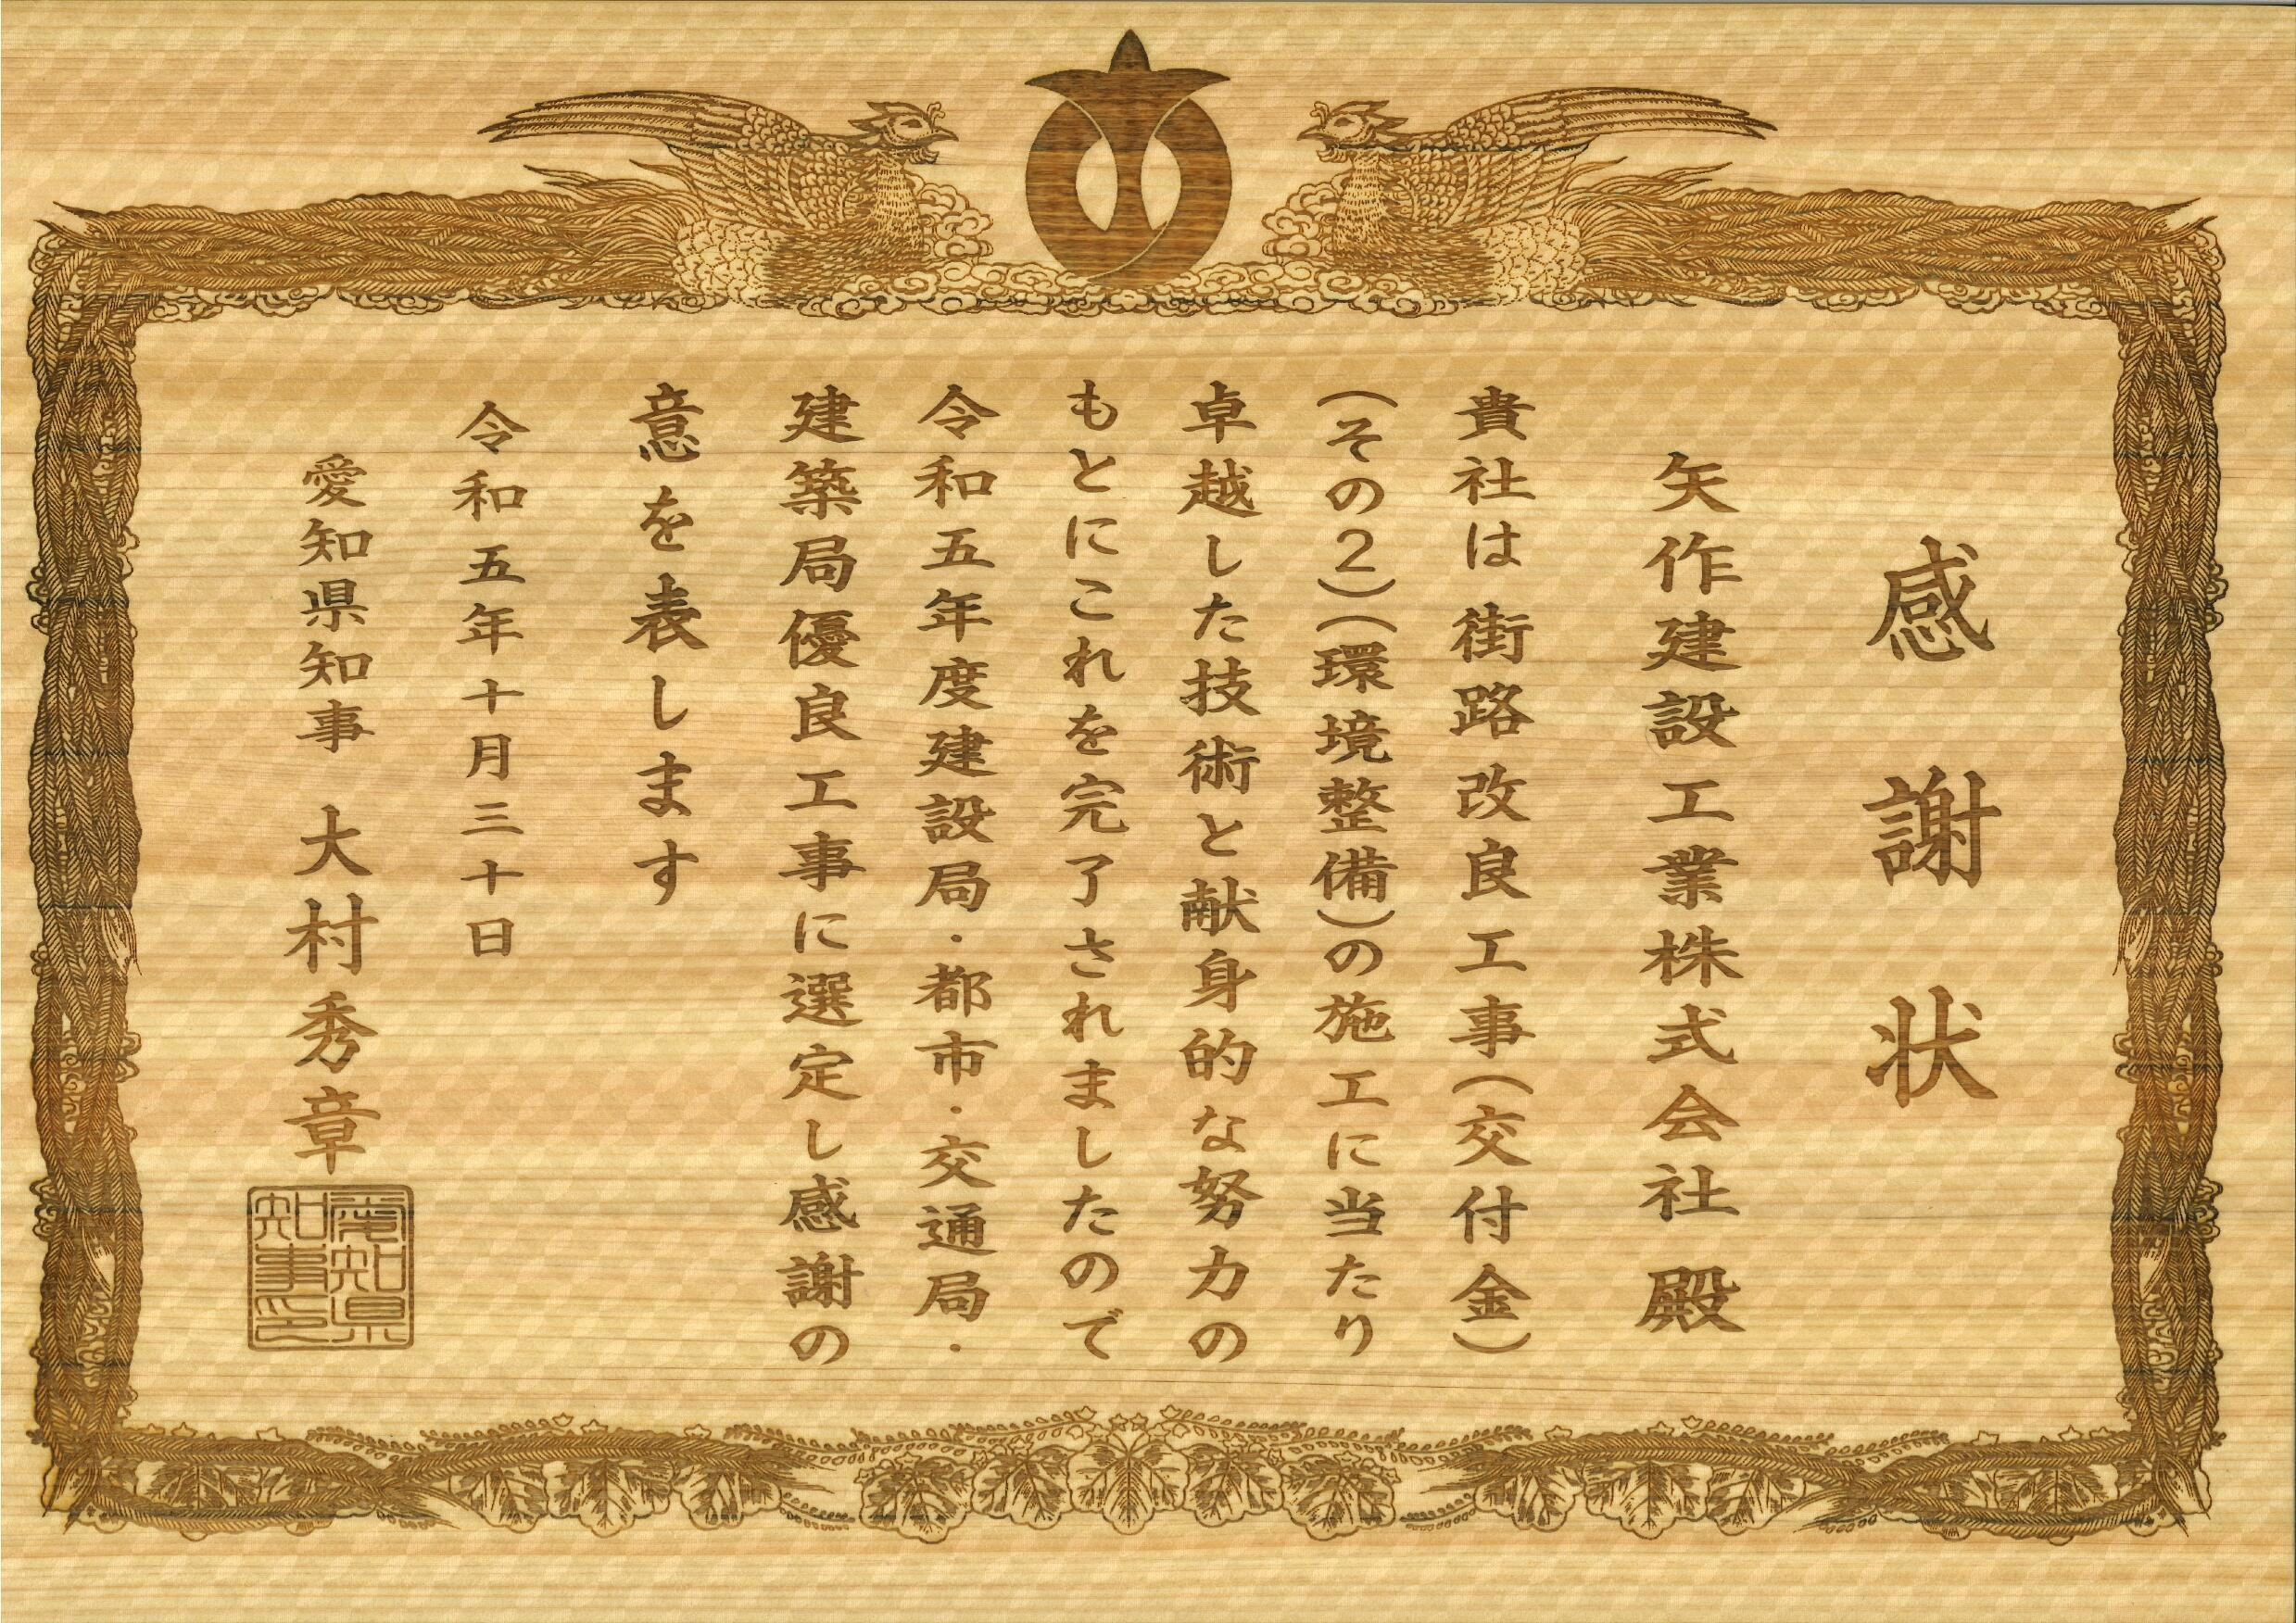 感謝状
矢作建設工業株式会社 殿
貴社は街路改良工事(交付金)
(その2)(環境整備)の施工に当たり
卓越した技術と献身的な努力の
もとにこれを完了されましたので
令和五年度建設局・都市・交通局・
建築局優良工事に選定し感謝の
意を表します
令和五年十月三十日
愛知県知事 大村秀章
愛知県
知事印